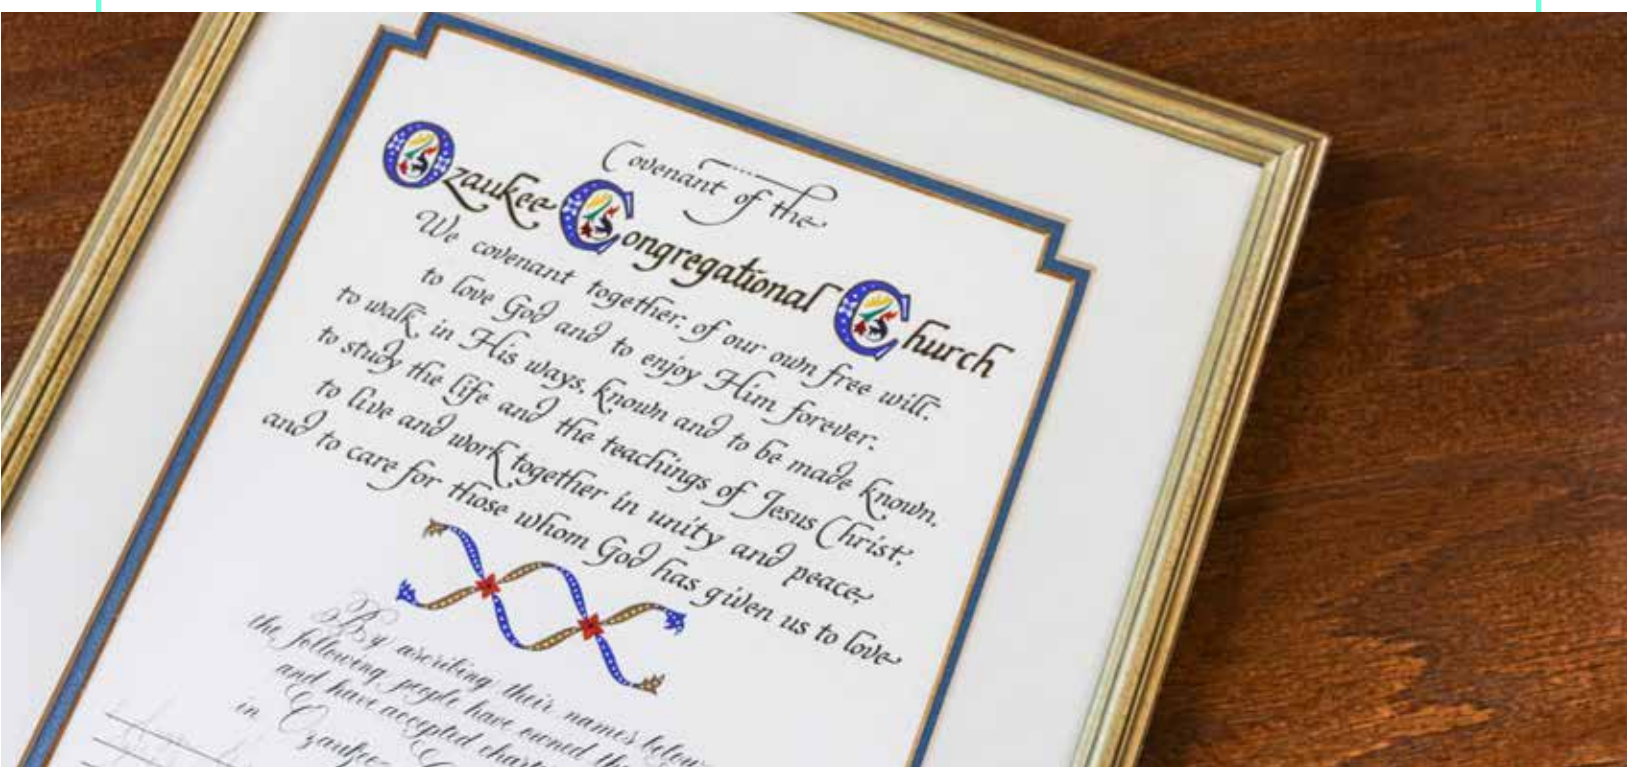 Covenant of the
Ozaukee Congregational Church
We covenant together, of our own free will,
to love God and to enjoy Him forever,
to walk in His ways, known and to be made known,
to study the life and the teachings of Jesus Christ,
to live and work together in unity and peace,
and to care for those whom God has given us to love
By ascribing their names below
the following people have owned the
and have accepted
in Ozaukee